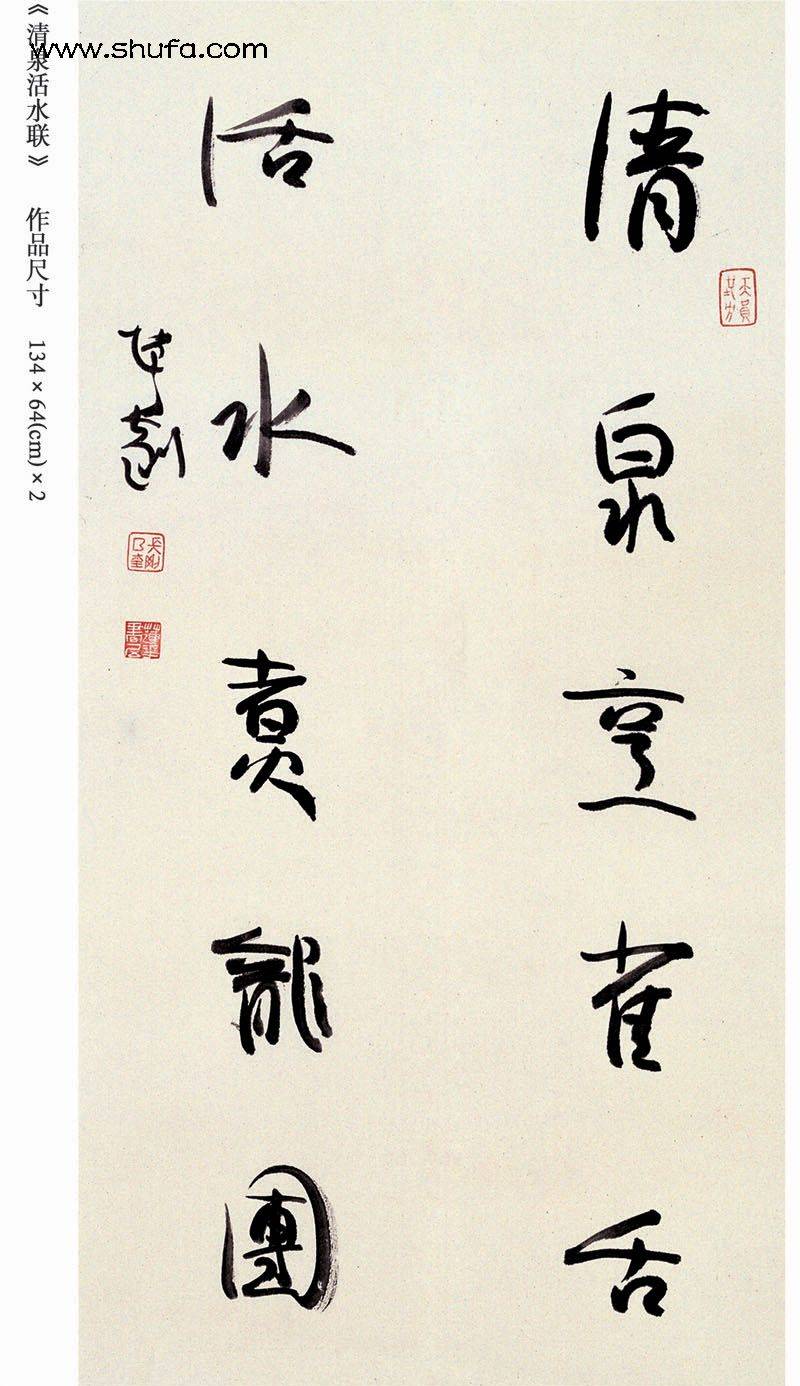 www.shufa.com
《清泉活水联》 作品尺寸 134×64(cm)×2
清泉烹雀舌
活水煮龍團